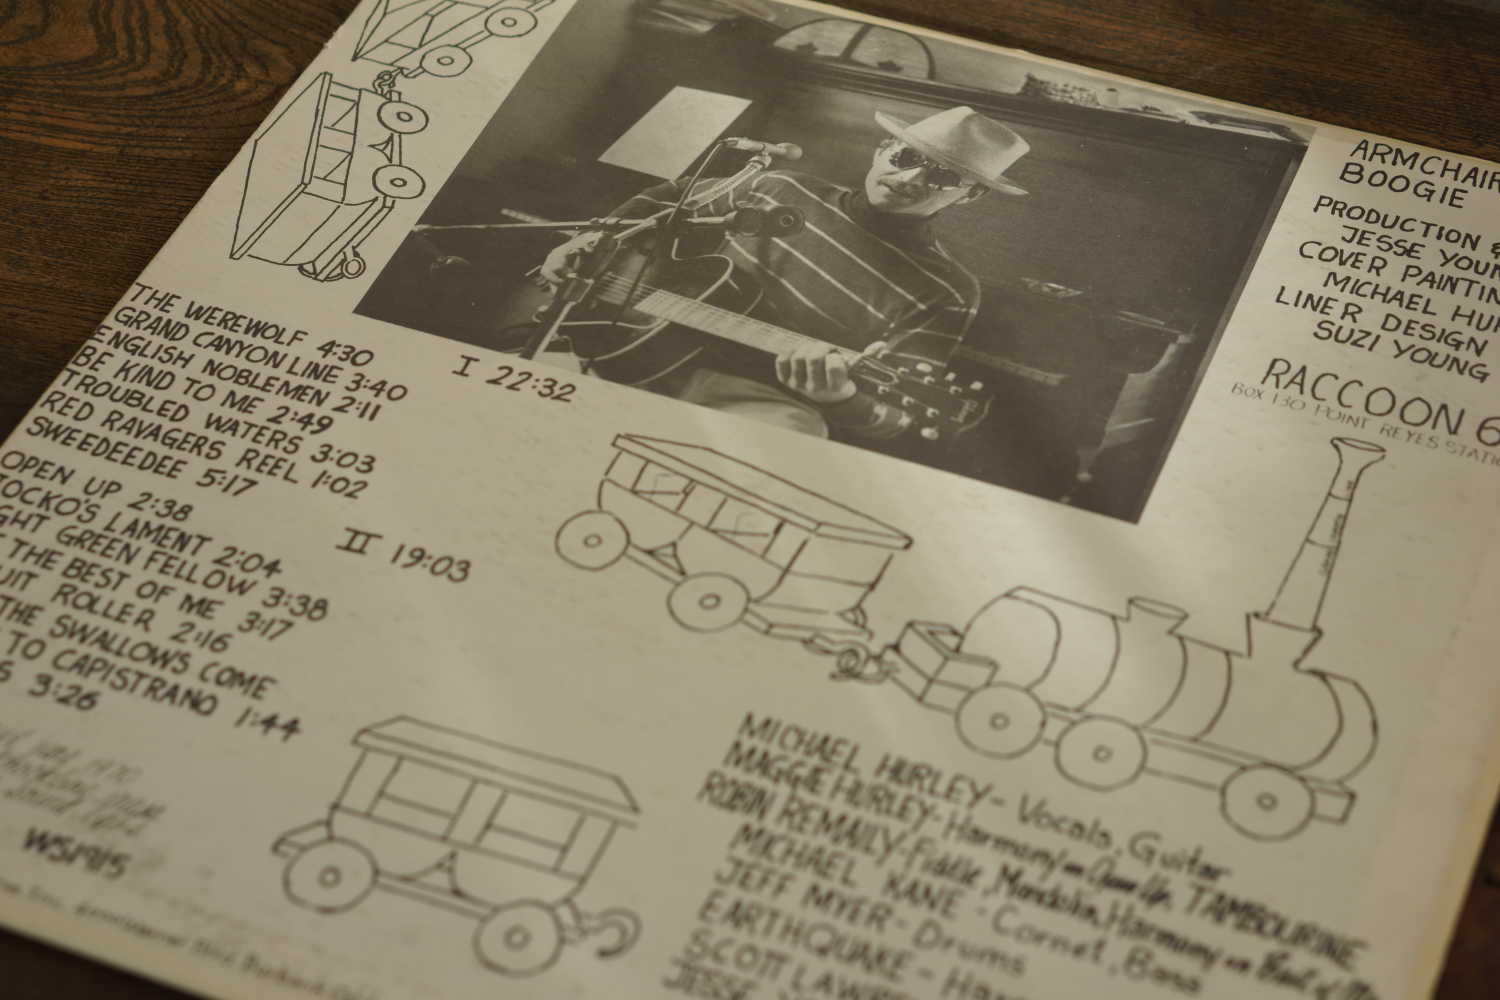 ARMCHAIR
BOOGIE
PRODUCTION &
JESSE
COVER
MICHAEL
LINER DESIGN
SUZI YOUNG
RACCOON 6
BOX 130 POINT REYES
THE WEREWOLF 4:30
GRAND CANYON LINE 3:40
ENGLISH NOBLEMEN 2:11
BE KIND TO ME 2:49
TROUBLED WATERS 3:03
RED RAVAGERS REEL 1:02
SWEEDEEDEE 5:17
I 22:32
OPEN UP 2:38
LAMENT 2:04
GREEN FELLOW 3:38
THE BEST OF ME 3:17
ROLLER 2:16
THE SWALLOWS COME
TO CAPISTRANO 1:44
3:26
II 19:03
WS1915
MICHAEL HURLEY - Vocals, Guitar
MAGGIE HURLEY - Harmony on Open Up, TAMBOURINE
ROBIN REMAILY - Fiddle, Mandolin, Harmony on
MICHAEL KANE - Cornet, Bass
JEFF MYER - Drums
EARTHQUAKE -
SCOTT
JESSE